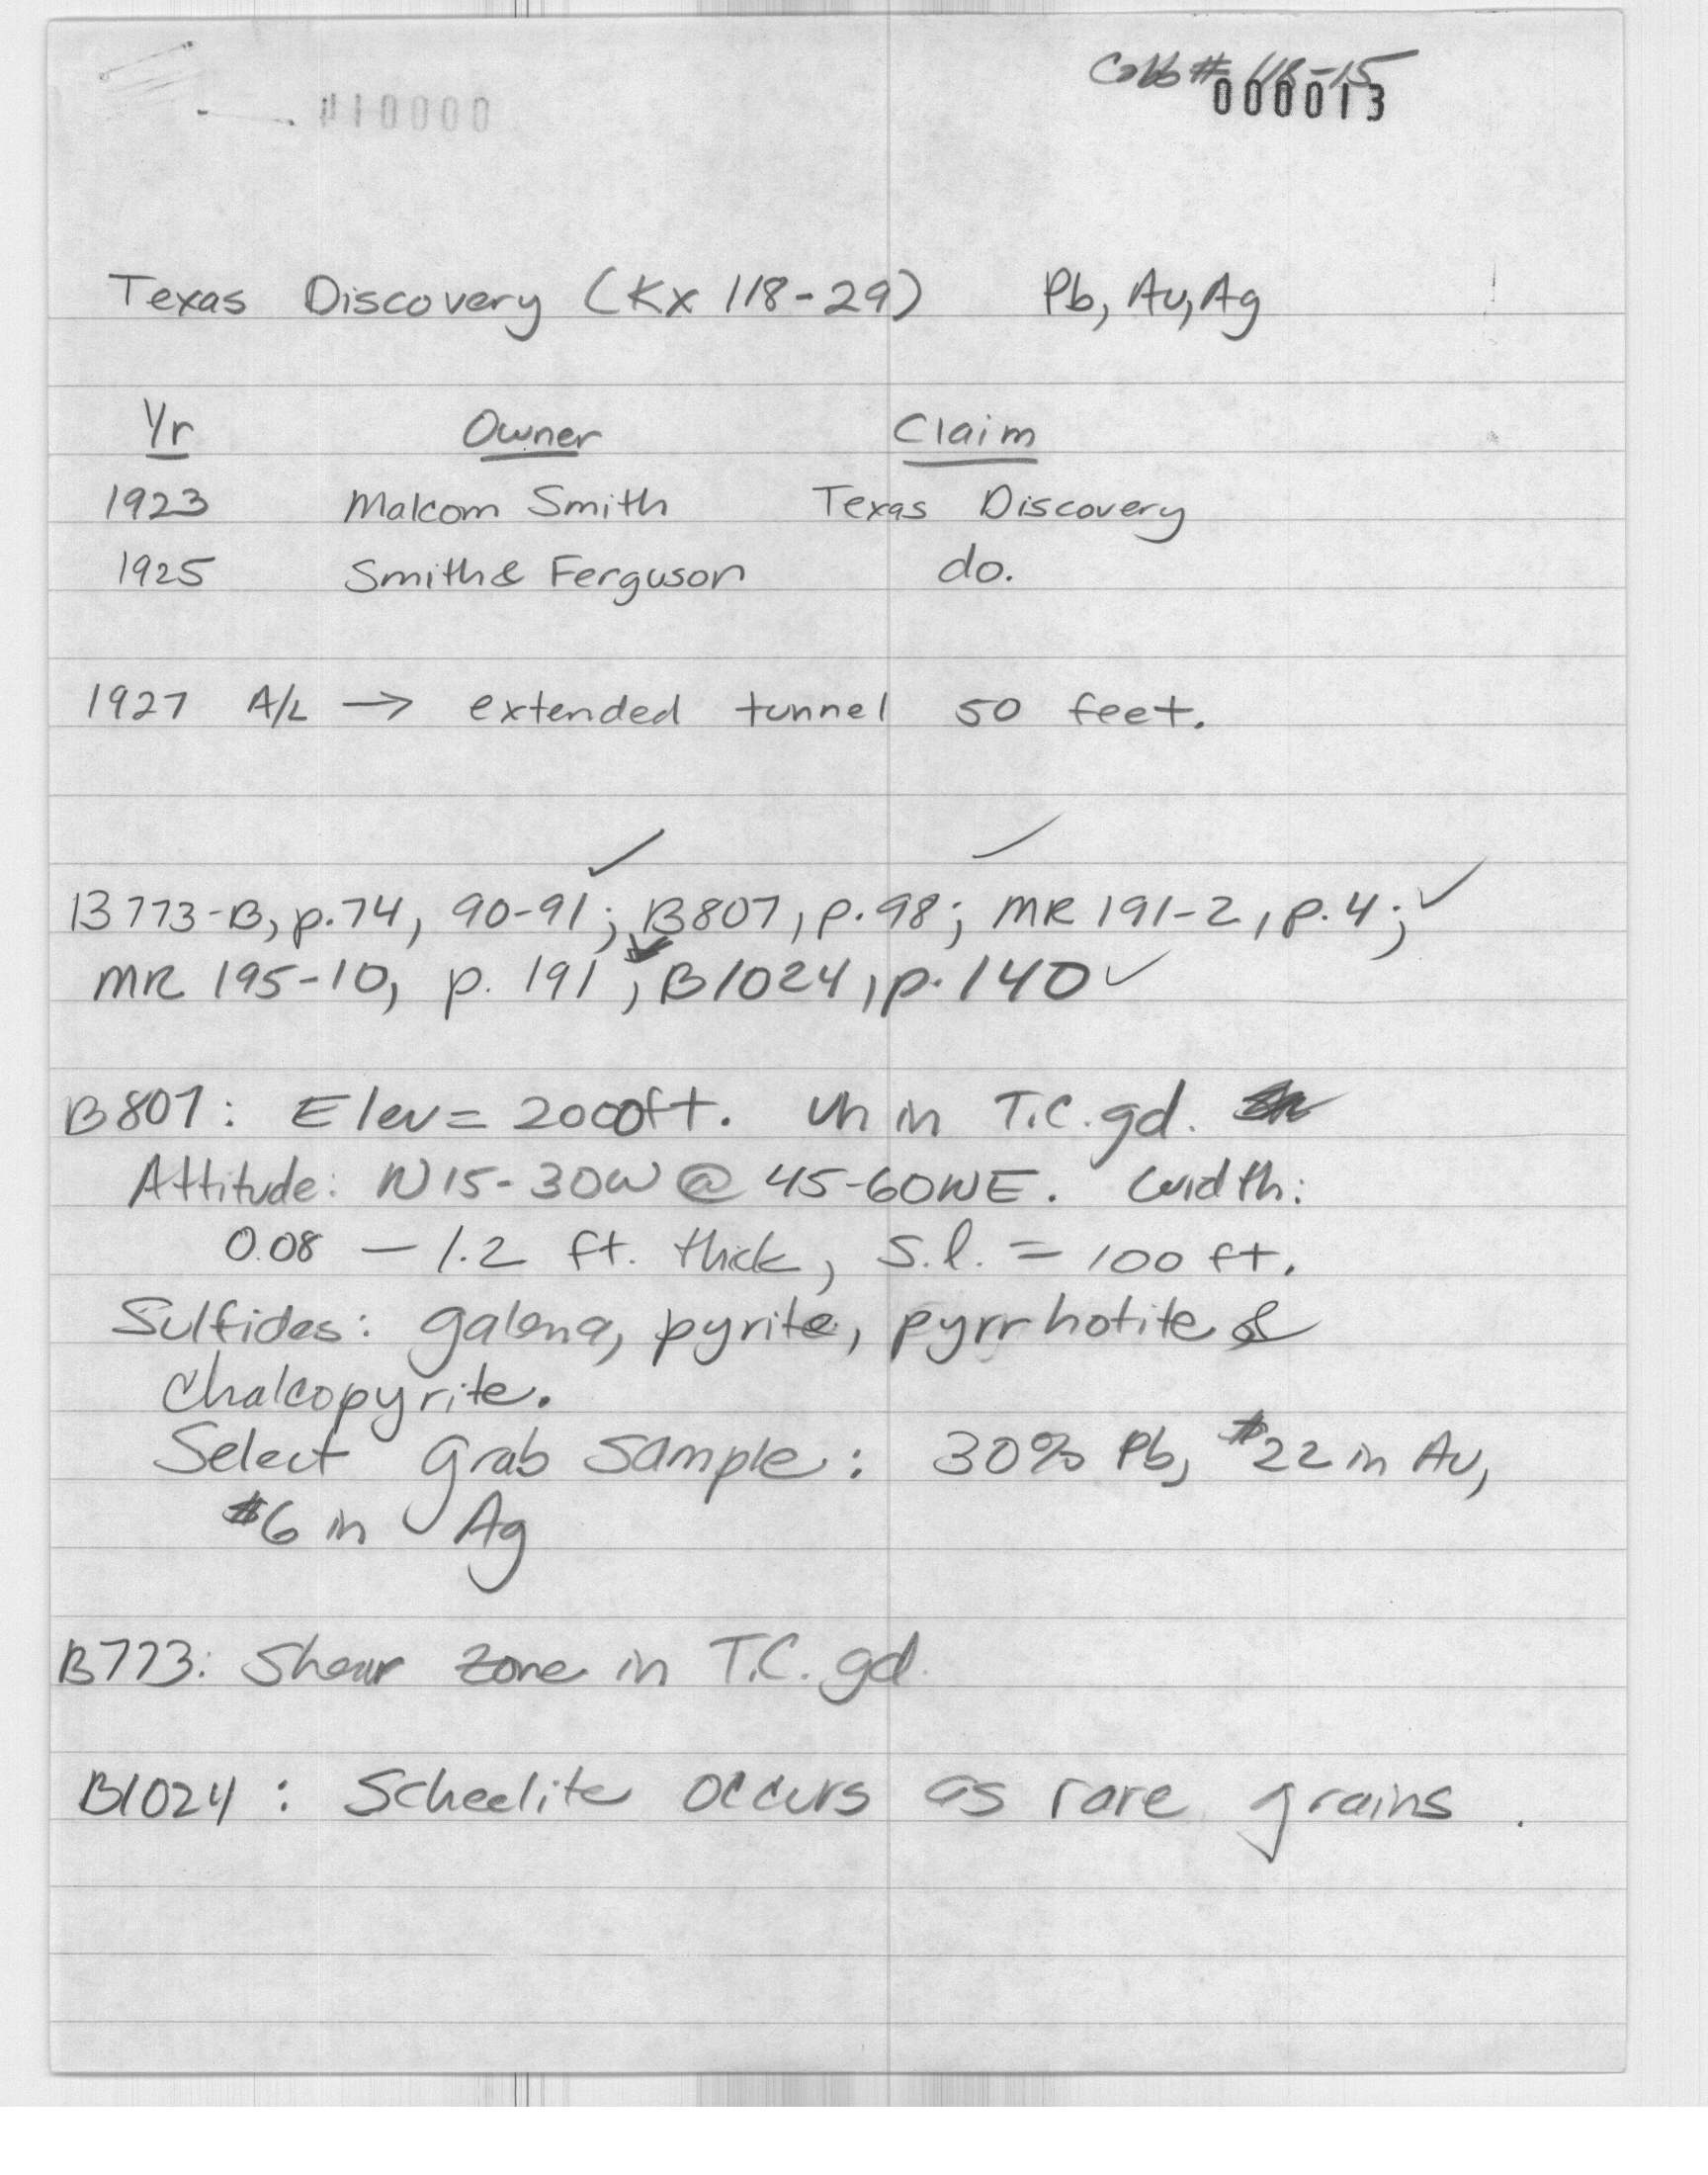 Cobb# 118-15
000013
Texas Discovery (Kx 118-29) Pb, Au, Ag
Yr Owner Claim
1923 Malcom Smith Texas Discovery
1925 Smith & Ferguson do.
1927 A/L → extended tunnel 50 feet.
B773-B, p.74, 90-91; B807, p.98; MR 191-2, p.4;
MR 195-10, p. 191; B1024, p.140
B807: Elev = 2000ft. vn in T.C. gd.
Attitude: N15-30W @ 45-60NE. Width:
0.08 – 1.2 ft. thick, s.l. = 100 ft.
Sulfides: galena, pyrite, pyrrhotite &
chalcopyrite.
Select grab sample: 30% Pb, $22 in Au,
$6 in Ag
B773: Shear zone in T.C. gd.
B1024: Scheelite occurs as rare grains.